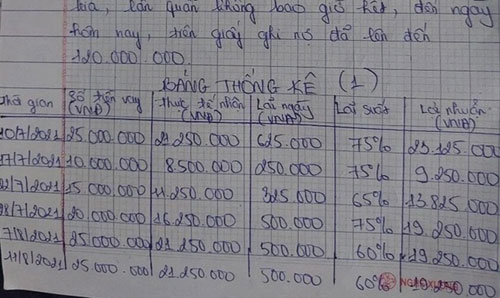 lần quẩn không bao giờ hết, đến ngày
hôm nay, tiền giấy ghi nợ đã lên đến
120.000.000
BẢNG THỐNG KÊ (1)
Thời gian Số tiền vay (VNĐ) Thực tế nhận (VNĐ) Lãi ngày (VNĐ) Lãi suất Lợi nhuận (VNĐ)
10/7/2021 25.000.000 21.250.000 625.000 75% 23.125.000
17/7/2021 10.000.000 8.500.000 250.000 75% 9.250.000
/7/2021 15.000.000 11.250.000 325.000 65% 13.825.000
/7/2021 20.000.000 16.250.000 500.000 75% 19.250.000
7/8/2021 25.000.000 21.250.000 500.000 60% 19.250.000
11/8/2021 25.000.000 21.250.000 500.000 60% 19.250.000